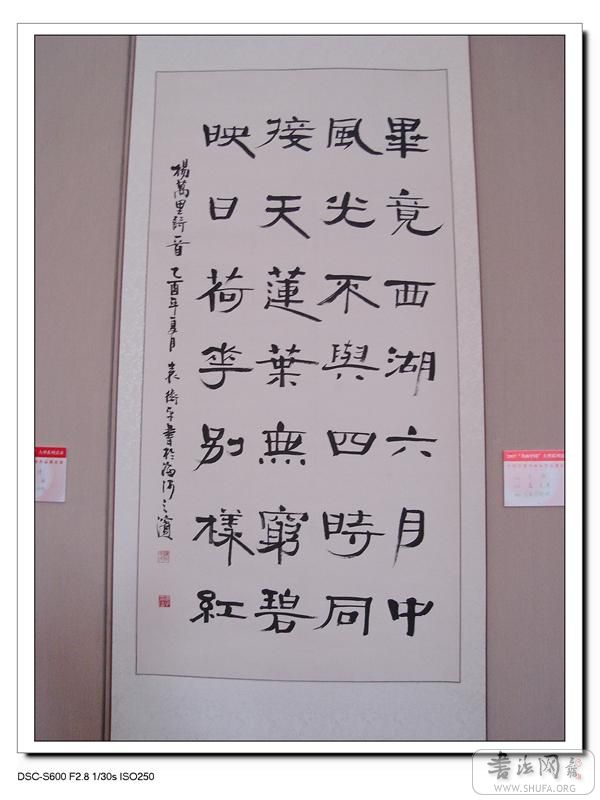 畢竟西湖六月中
風光不與四時同
接天蓮葉無窮碧
映日荷華別樣紅
楊萬里詩一首 乙酉年夏月 袁衛平書於海河之濱
書法网
WWW.SHUFA.ORG
DSC-S600 F2.8 1/30s ISO250